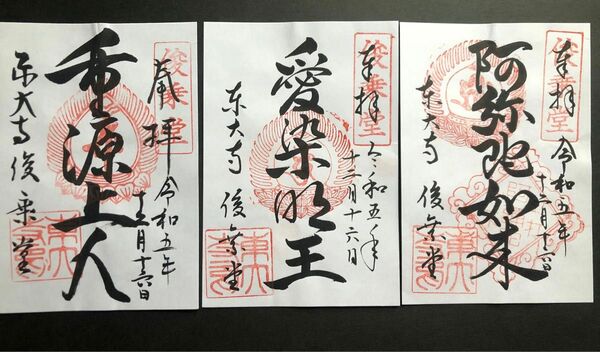 俊乗堂
奉拝
重源上人
令和五年
十二月十六日
東大寺 俊乗堂
俊乗堂
奉拝
愛染明王
令和五年
十二月十六日
東大寺 俊乗堂
俊乗堂
奉拝
阿弥陀如来
令和五年
十二月十六日
東大寺 俊乗堂